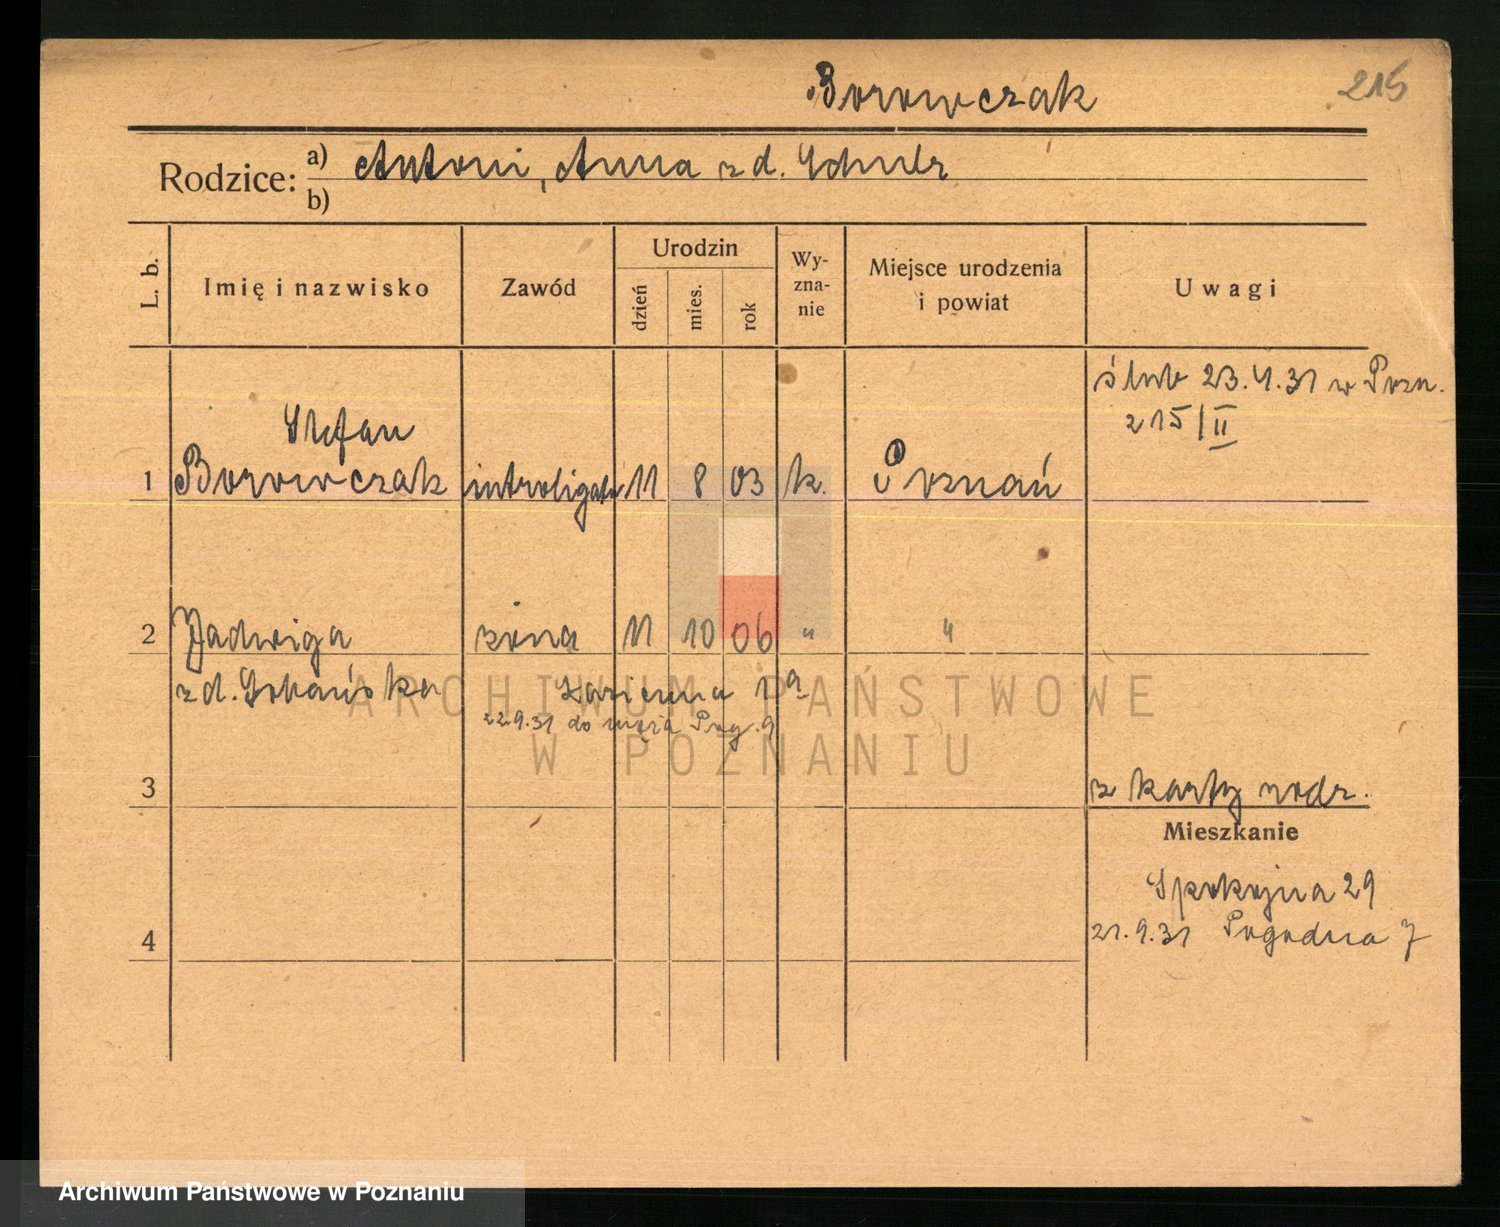 Borowczak
215
Rodzice: a) Antoni, Anna z d.
b)
L. b.
Imię i nazwisko
Zawód
Urodzin
dzień
mies.
rok
Wy-
zna-
nie
Miejsce urodzenia
i powiat
Uwagi
ślub 23.4.31 w Pozn.
215/II
Stefan
1 Borowczak introligator 11 8 03 k. Poznań
2 Jadwiga żona 11 10 06 " "
z d.
22.9.31 do męża Pog. 9
ARCHIWUM PAŃSTWOWE
W POZNANIU
3
z karty rodz.
Mieszkanie
Spokojna 29
21.9.31 Pogodna 7
4
Archiwum Państwowe w Poznaniu